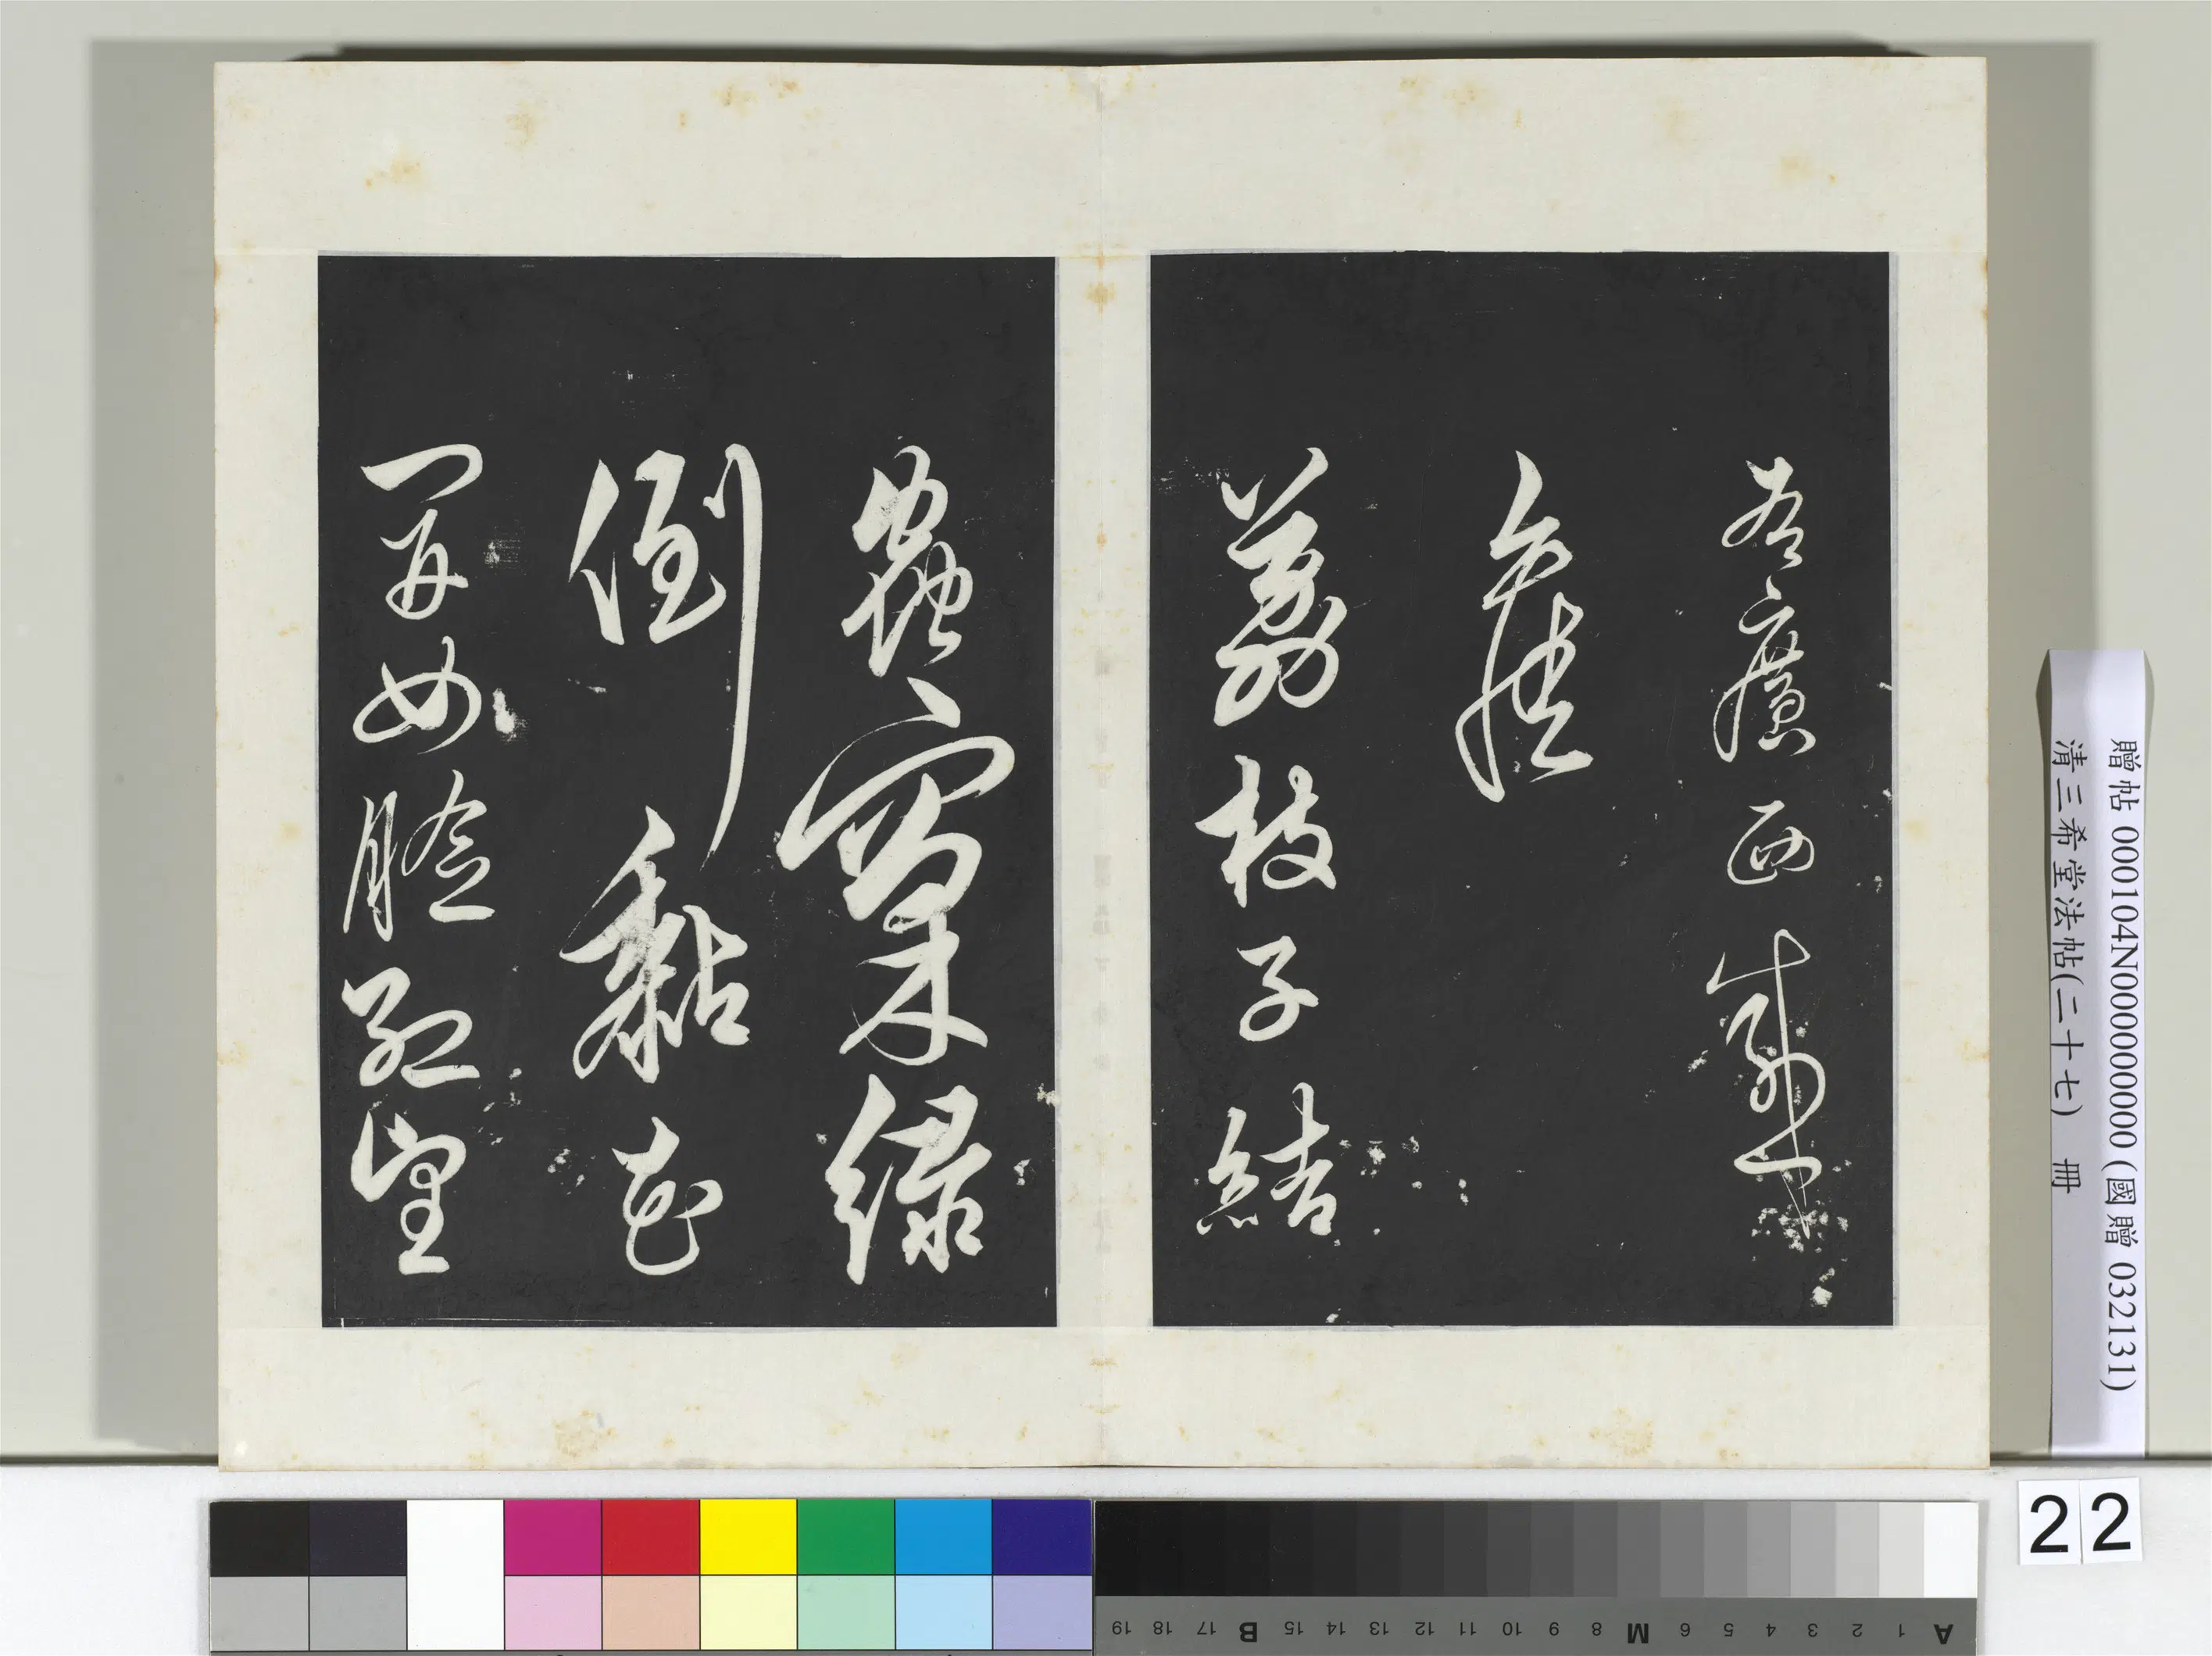 廣西
荔枝子結
蟲窠綠
倒黏花
開女臉紅望
贈帖 000104N000000000 (國贈 032131)
清三希堂法帖(二十七) 冊
22
A 1 2 3 4 5 6 M 8 9 10 11 12 13 14 15 B 17 18 19